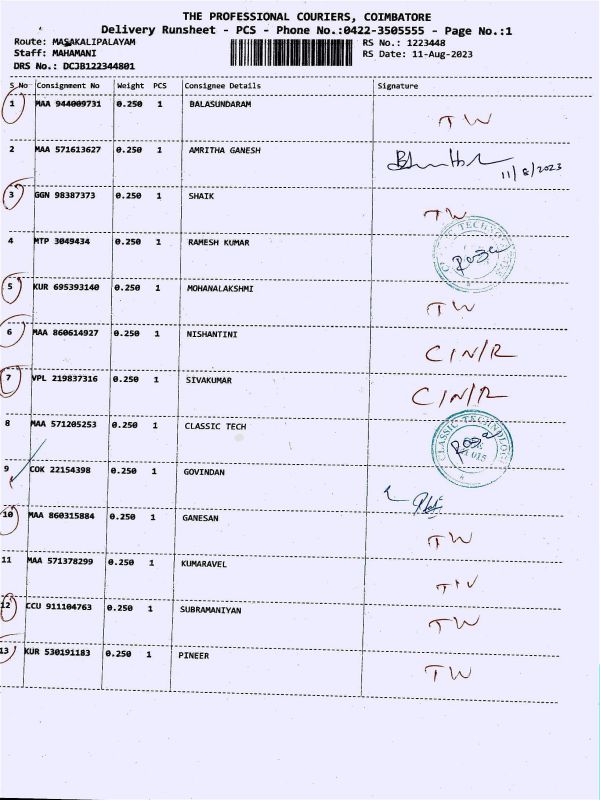 THE PROFESSIONAL COURIERS, COIMBATORE
Delivery Runsheet - PCS - Phone No.:0422-3505555 - Page No.:1
Route: MASAKALIPALAYAM RS No.: 1223448
Staff: MAHAMANI RS Date: 11-Aug-2023
DRS No.: DCJB122344801
S No Consignment No Weight PCS Consignee Details Signature
1 MAA 944009731 0.250 1 BALASUNDARAM
TW
2 MAA 571613627 0.250 1 AMRITHA GANESH
11/8/2023
3 GGN 98387373 0.250 1 SHAIK
TW
4 MTP 3049434 0.250 1 RAMESH KUMAR
5 KUR 695393140 0.250 1 MOHANALAKSHMI
TW
6 MAA 860614927 0.250 1 NISHANTINI
C/N/R
7 VPL 219837316 0.250 1 SIVAKUMAR
C/N/R
8 MAA 571205253 0.250 1 CLASSIC TECH
CLASSIC TECHNOLOG
9 COK 22154398 0.250 1 GOVINDAN
10 MAA 860315884 0.250 1 GANESAN
TW
11 MAA 571378299 0.250 1 KUMARAVEL
TW
12 CCU 911104763 0.250 1 SUBRAMANIYAN
TW
13 KUR 530191183 0.250 1 PINEER
TW